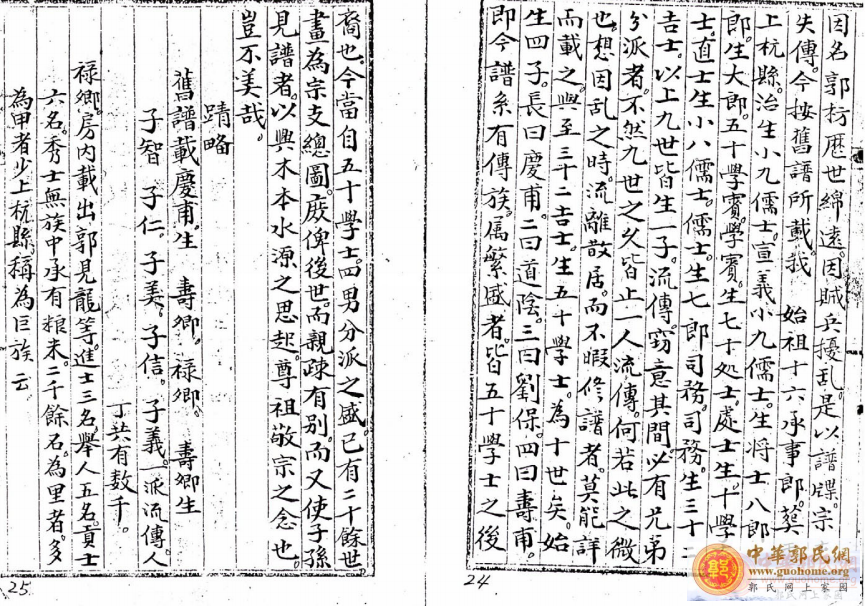 因名郭坊歷世綿遠。因賊兵擾乱。是以譜牒。宗
失傳。今按舊譜所載。我 始祖十六承事郎。葬
上杭縣。治生小九儒士。宣義小九儒士。生将士八郎
郎。生大郎。五十學賓。學賓。生七十処士。處士生十學
士。直士生小八儒士。儒士。生七郎司務。司務。生三十二
吉士。以上九世皆生一子。流傳。窃意其間。必有兄弟
分派者。不然九世之久。皆止一人流傳。何若此之微
也。想因乱之時。流離散居。而不暇修譜者。莫能詳
而載之。與至三十二吉士。生五十學士。為十世矣。始
生四子。長曰慶甫。二曰道陰。三曰劉保。四曰壽甫。
即今譜系有傳族。属繁盛者。皆五十學士之後
24
裔也。今當自五十學士。四男分派之盛。已有二十餘世
畫為宗支總圖。庶俾後世。而親疎有别。而又使子孫
見譜者。以興木本水源之思。起尊祖敬宗之念也。
豈不美哉。
蹟略
舊譜載慶甫。生 壽卿。祿卿。 壽卿生
子智 子仁。子美。子信。子義。一派流傳人
丁共有数千。
祿卿。房内載出郭見龍等。進士三名。舉人五名。貢士
六名。秀士無族中承有粮米。二千餘石。為里者。多
為甲者少上杭縣稱為巨族云
25
中華郭氏網
www.guohome.org
郭氏网上家园